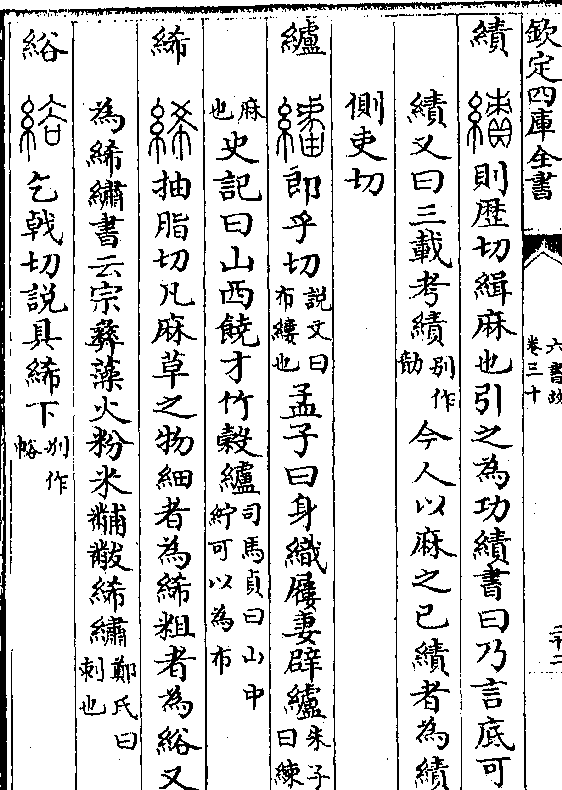 欽定四庫全書
六書故
卷三十
二十二
績 則歴切緝麻也引之為功績書曰乃言底可
績又曰三載考績别作勣今人以麻之已績者為績
側吏切
纑 郎乎切説文曰布縷也孟子曰身織屨妻辟纑朱子曰練
麻也史記曰山西饒才竹榖纑司馬貞曰山中紵可以為布
絺 抽脂切凡麻草之物細者為絺粗者為綌又
為絺繡書云宗彝藻火粉米黼黻絺繡鄭氏曰刺也
綌 乞㦸切説具絺下别作